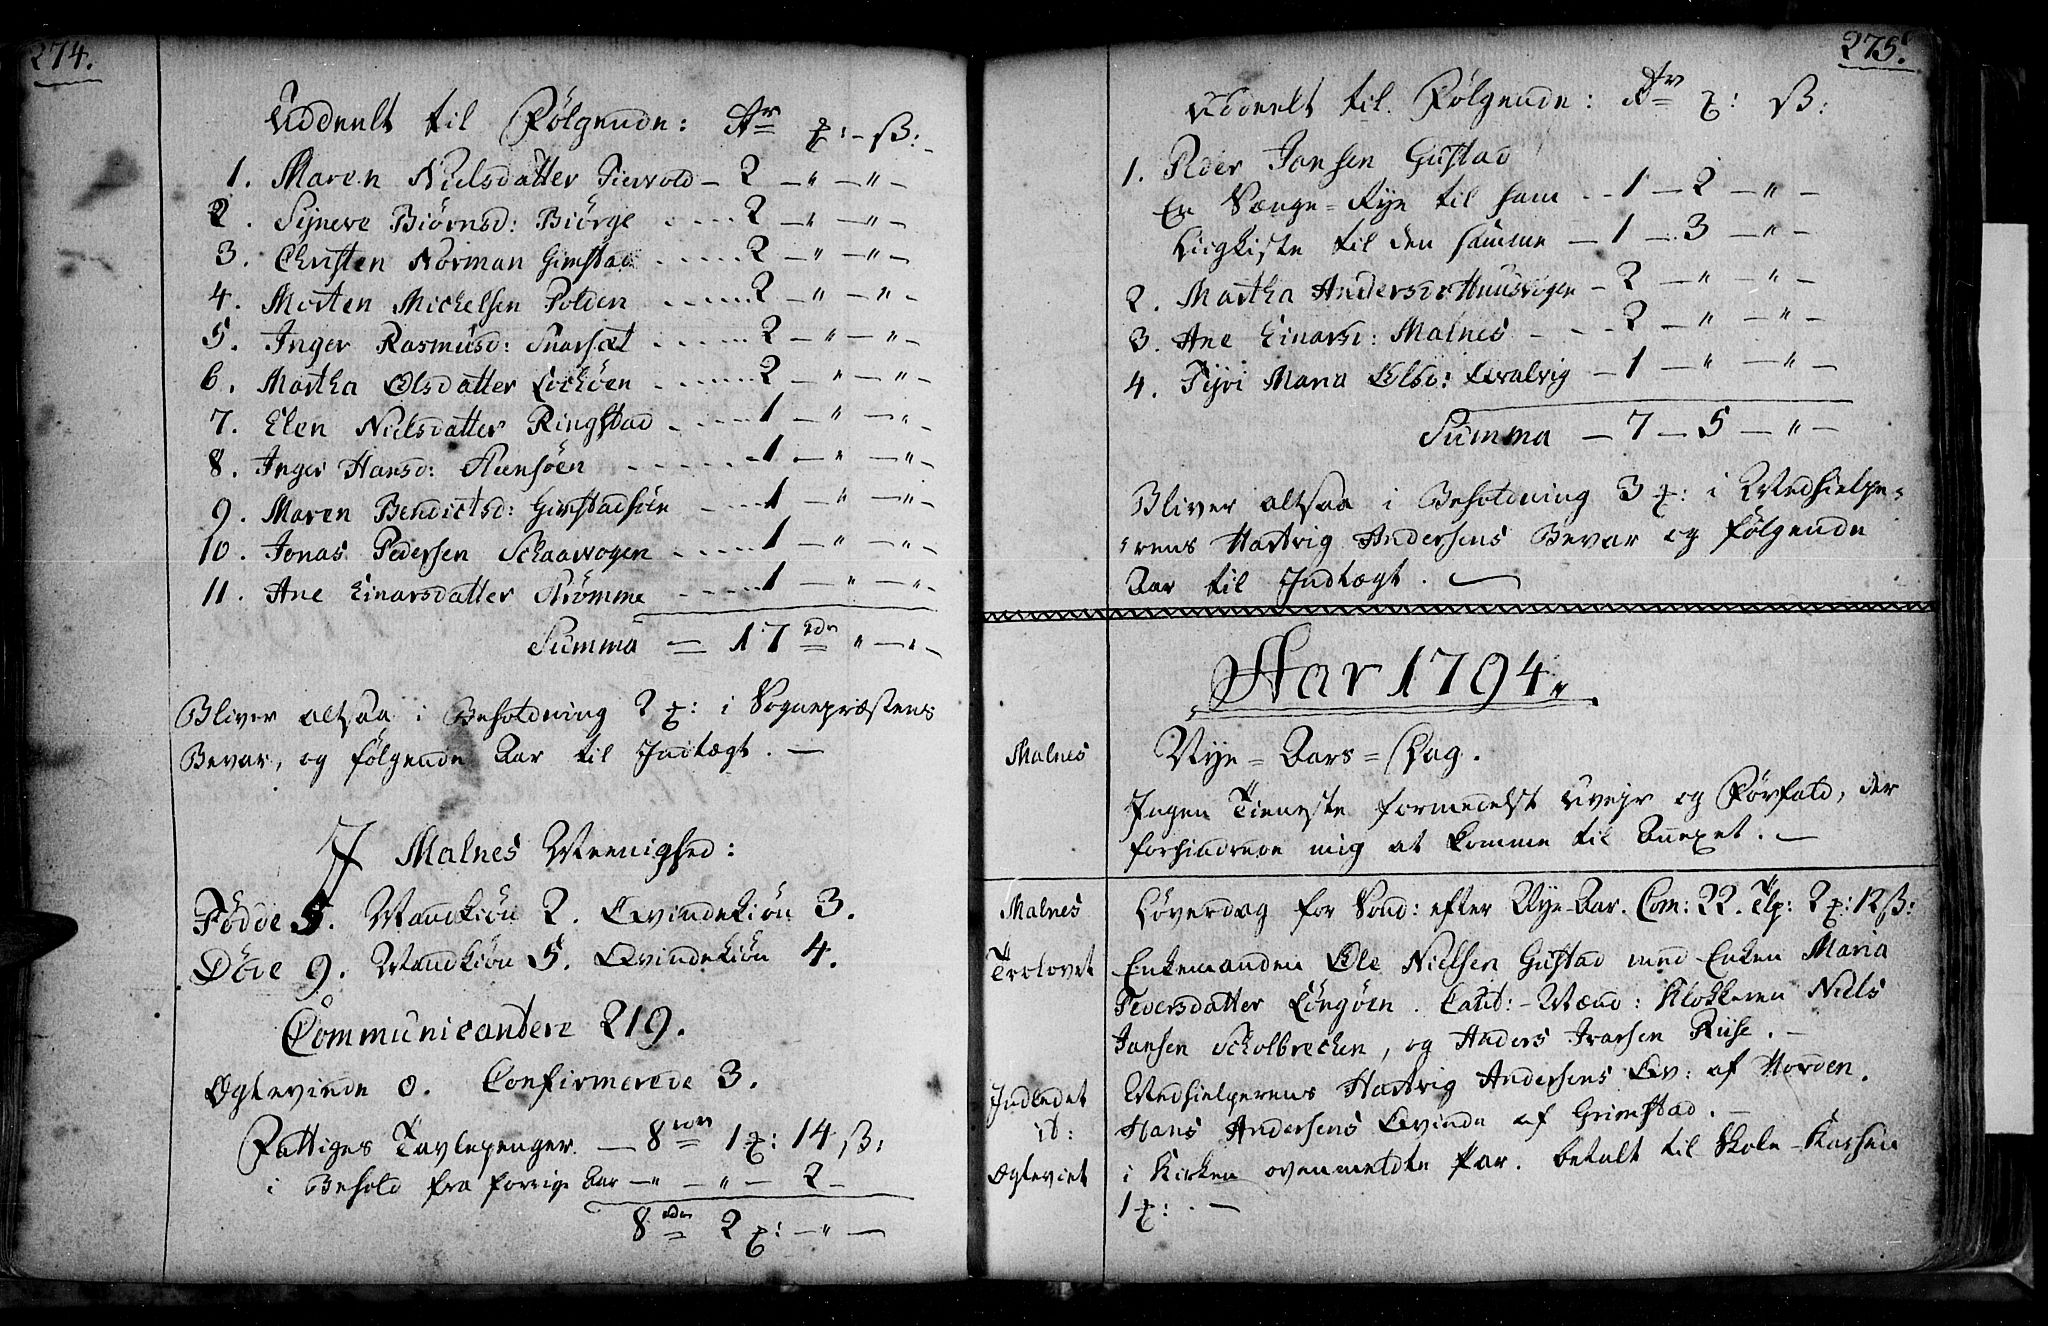 274.
Uddeelt til Følgende: Rdr ꝟ: ß:
1. Maren Nielsdatter Tiervold – 2 – " – " –
2. Synere Biørnsd: Biørge ..... 2 – " – " –
3. Christen Norman Gimstad ..... 2 – " – " –
4. Morten Michelsen Polden ..... 2 – " – " –
5. Inger Rasmusd: Snarset ..... 2 – " – " –
6. Martha Olsdatter Lochøen ..... 2 – " – " –
7. Elen Nielsdatter Ringstad ..... 1 – " – " –
8. Inger Hansd: Steensøen ..... 1 – " – " –
9. Maren Bendictsd: Gimstadsøen ..... 1 – " – " –
10. Jonas Pedersen Schaarvogen ..... 1 – " – " –
11. Ane Einarsdatter Strømme ..... 1 – " – " –
Summa = 17 rdr " – " –
Bliver altsaa i Beholdning 2 ꝟ: i Sognepræstens
Bevar, og følgende Aar til Indtægt. –
I Malnes Meenighed:
Fødde 5. Mandkiøn 2. Qvindekiøn 3.
Døde 9. Mandkiøn 5. Qvindekiøn 4.
Communicantere 219.
Ægtevinde 0. Confirmerede 3.
Fattiges Tavlepenger. – 8 rdr 1 ꝟ: 14 ß:
i Behold fra forrige Aar – " – " – 2 –
8 rdr 2 ꝟ: – " –
275.
Uddeelt til Følgende: Rdr ꝟ: ß:
1. Peder Jansen Gustad
En Senge-Rye til ham – 1 – 2 – " –
Liigkiste til den samme – 1 – 3 – " –
2. Martha Andersd: Huusvogen – 2 – " – " –
3. Ane Einarsd: Malnes – 2 – " – " –
4. Maria Olsd: Qvalvig – 1 – " – " –
Summa – 7 – 5 – " –
Bliver altsaa i Beholdning 3 ꝟ: i Medhielpe-
rens Hartvig Andersens Bevar og følgende
Aar til Indtægt. –
Aar 1794.
Malnes Nye-Aars-Dag.
Ingen Tieneste formedelst Uvejr og Førfald, der
forhindrede mig at komme til Annexet. –
Malnes Løverdag for Sønd: efter Nye Aar. Com: 22. Tlp: 2 ꝟ: 12 ß:
Trolovet Enkemanden Ole Nielsen Gustad med Enken Maria
Pedersdatter Løngøen. Caut:-Mænd: Klokkeren Niels
Jansen Scholbrechen, og Anders Ivarsen Riise. –
Indledet Medhielperens Hartvig Andersens Qv: af Horden.
it: Hans Andersens Qvinde af Grimstad. –
Ægteviet i Kirken ovenmeldte Par. betalt til Skole-Kassen
1 ꝟ: . –